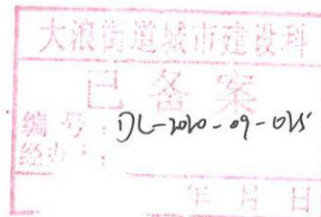 大浪街道城市建设科
已备案
编号：DL-2020-09-025
经办：
年月日